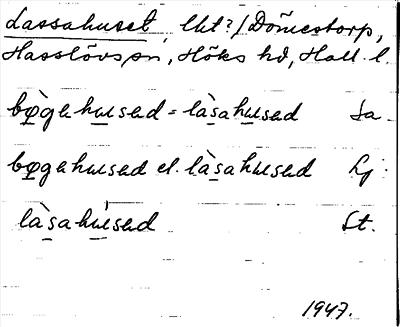 Lassahuset, lht?/Dömestorp,
Hasslövs sn, Höks hd, Hall. l.
bø̀gahu̲sad = là̲sahu̲sad Sa.
bø̲gahusad el. là̲sahusad Lj.
là̲sahù̲sad St.
1947.